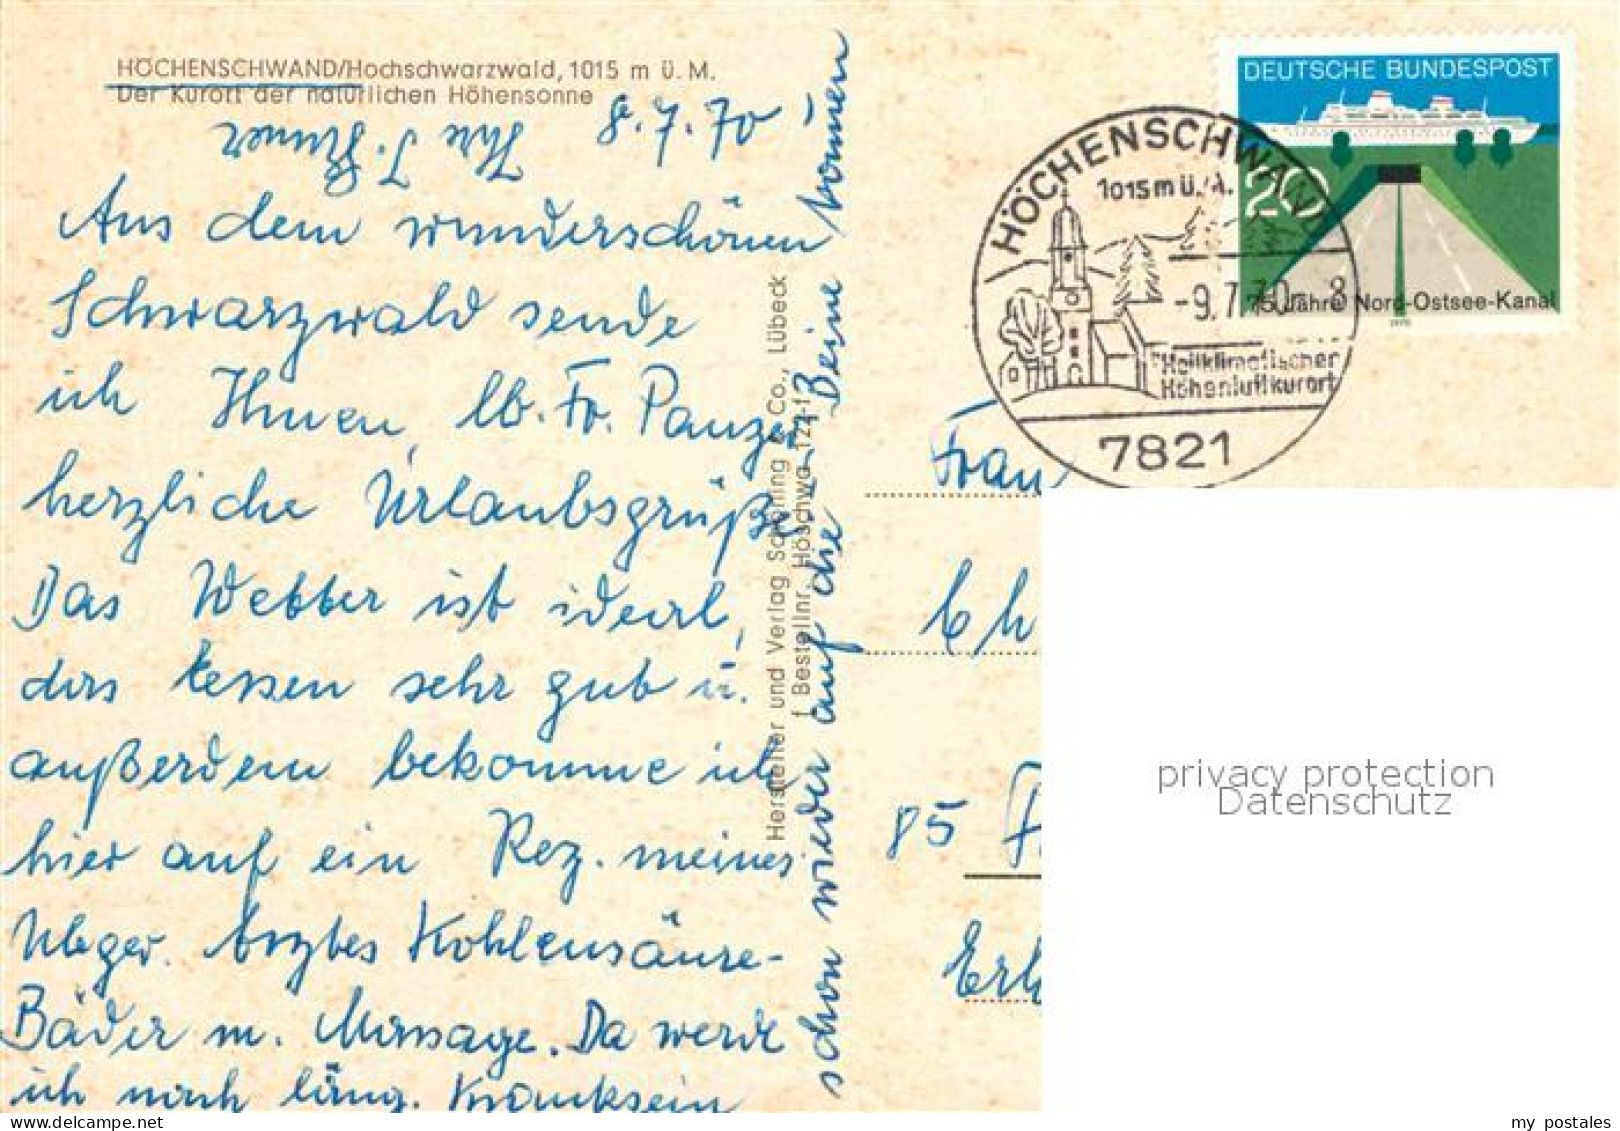 HÖCHENSCHWAND/Hochschwarzwald, 1015 m ü. M.
Der Kurort der natürlichen Höhensonne
8.7.70
Aus dem wunderschönen
Schwarzwald sende
ich Ihnen, lb. Fr. Panzer
herzliche Urlaubsgrüße.
Das Wetter ist ideal,
das Essen sehr gut u.
außerdem bekomme ich
hier auf ein Rez. meines
Nbger. Arztes Kohlensäure-
Bäder m. Massage. Da werde
ich nach läng. Kranksein
schon wieder auf die Beine kommen!
Ihre
Hersteller und Verlag Schöning & Co., Lübeck
Bestellnr. Höschwa
DEUTSCHE BUNDESPOST
20
75 Jahre Nord-Ostsee-Kanal
1970
HÖCHENSCHWAND
1015 m ü. M.
-9.7.70-8
Heilklimatischer
Höhenluftkurort
7821
Frau
85
Erl
privacy protection
Datenschutz
my postales